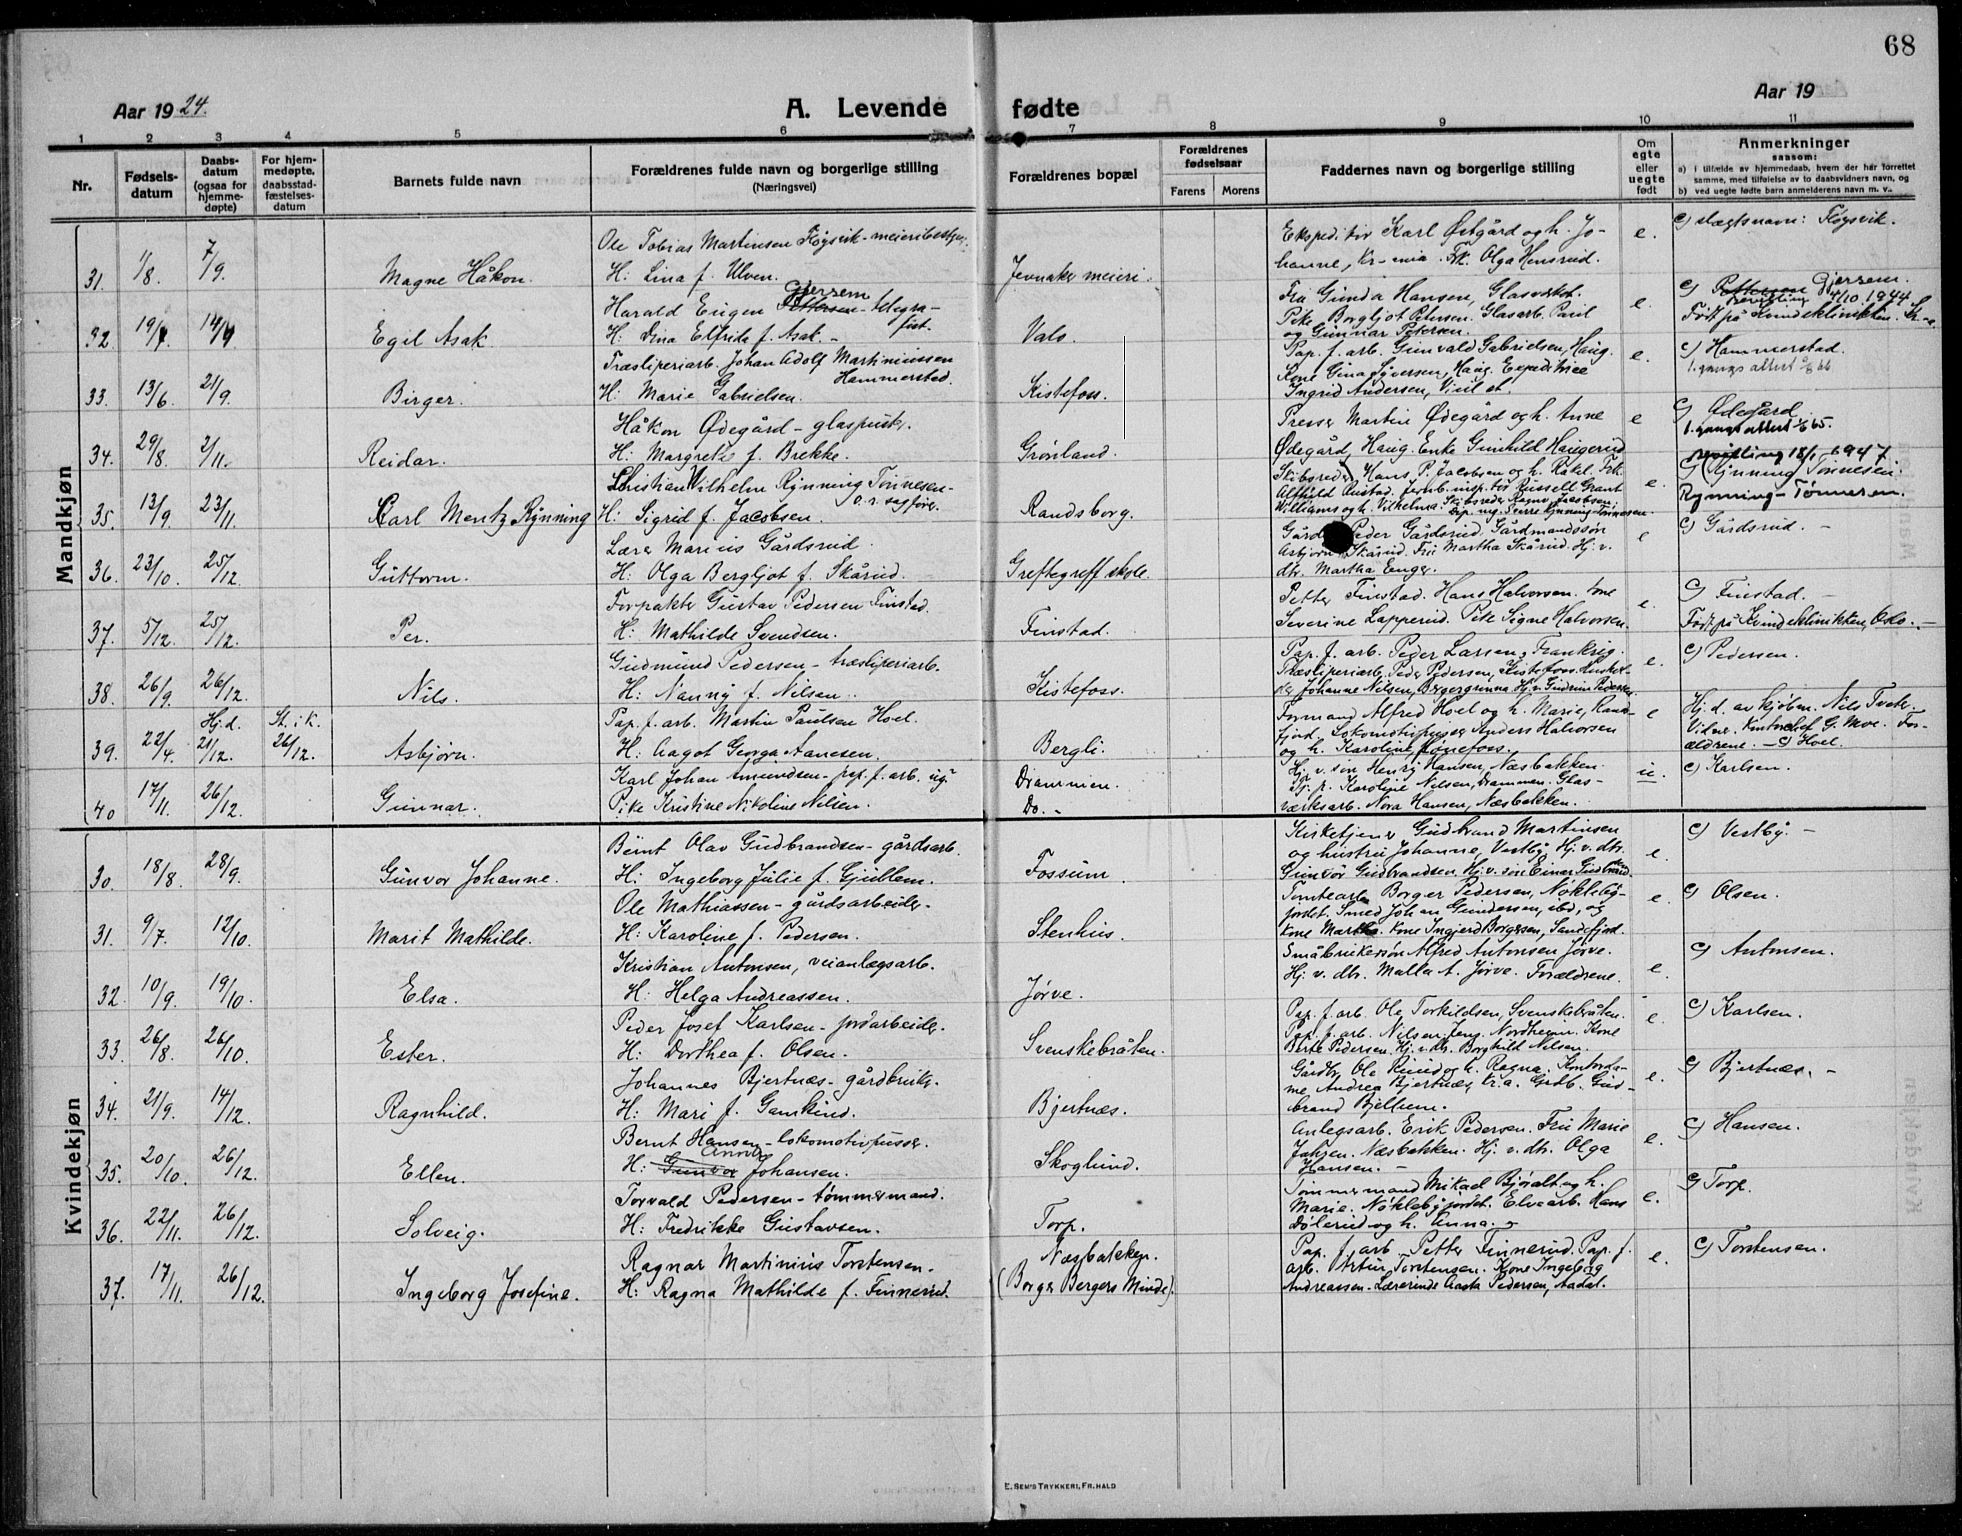 68
Aar 1924. A. Levende fødte Aar 19
1 2 3 4 5 6 7 8 9 10 11
Nr.
Fødsels-
datum
Daabs-
datum
(ogsaa for
hjemme-
døpte)
For hjem-
medøpte,
daabsstad-
fæstelses-
datum
Barnets fulde navn
Forældrenes fulde navn og borgerlige stilling
(Næringsvei)
Forældrenes bopæl
Forældrenes
fødselsaar
Farens Morens
Faddernes navn og borgerlige stilling
Om
egte
eller
uegte
født
Anmerkninger
saasom:
a) i tilfælde av hjemmedaab, hvem der har forrettet
samme, med tilføielse av to daabsvidners navn, og
b) ved uegte fødte barn anmelderens navn m. v.
Mandkjøn
Ole Tobias Martinsen Fløysvik - meieribestyr.
31. 1/8. 7/9. Magne Håkon. H: Lina f. Ulven. Jevnaker meieri.
Ekspeditør Karl Østgård og h. Jo-
hanne, Kr-nia. Frk. Olga Hensrud.
e.
c) slægtsnavn: Fløysvik.
Harald Eugen Pettersen Gjersem - telegra-
fist.
32. 19/7. 14/9 Egil Asak. H: Dina Elfride f. Asak. - Valo.
Fru Gunda Hansen, Glasverket.
Pike Borgljot Petersen. Glasarb. Paul
og Gunnar Petersen.
e.
c) Pettersen Gjersem.
bevilling 4/10.1944
Født på Kvindeklinikken. Kr-a.
Træsliperiarb. Johan Adolf Martiniussen
Hammerstad.
33. 13/6 21/9. Birger. H: Marie Gabrielsen. Kistefoss.
Pap. f. arb. Gunvald Gabrielsen, Haug.
Kone Gina Syversen, Haug. Expeditrice
Ingrid Andersen, Viul st.
e.
c) Hammerstad.
1. gangs attest
Håkon Ødegård - glaspuss.
34. 29/8. 2/11. Reidar. H: Margrete f. Brekke. Grønland.
Presser Martin Ødegård og h. Anne
Ødegård, Haug. Enke Gunhild Haugerud
e
c) Ødegård
1. gangs attest 65.
Christian Vilhelm Rynning Tønnesen -
o.r.sagfører.
35. 13/9. 23/11. Carl Mentz Rynning H: Sigrid f. Jacobsen. Randsborg.
Skibsreder Hans P. Jacobsen og h. Rakel. Frk.
Alfhild Austad. Jernb.insp. tor Russell Grant
Williams og h. Vilhelmine. Skibsreder Ragnv. Jacobsen.
Sverre Rynning-Tønnesen.
e.
bevilling 18/1 1947
c) (Rynning) Tønnesen
Rynning-Tønnesen.
Lærer Marius Gårdsrud.
36. 23/10. 25/12. Guttorm. H: Olga Bergljot f. Skårud. Greftegreff skole.
Peder Gårdsrud. Gårdmandssøn
Asbjørn Skårud. Fru Martha Skårud. Hj. v.
dtr. Martha Enger.
e
c) Gårdsrud. -
Forpakter Gustav Pedersen Finstad.
37. 5/12. 25/12. Per. H: Mathilde Svendsen. Finstad.
Petter Finstad. Hans Halvorsen. Kone
Severine Lapperud. Pike Signe Halvorsen.
e.
c) Finstad. -
Født på Kvindeklinikken, Oslo. -
Gudmund Pedersen - træsliperiarb.
38. 26/9. 26/12. Nils. H: Nanny f. Nilsen. Kistefoss.
Pap. f. arb. Peder Larsen, Frankrig.
Træsliperiarb. Peder Pedersen, Kistefoss.
Johanne Nilsen, Bergergrinna. Hj. v. Gudrun Pedersen.
e.
c) Pedersen.
Hj.d. St. i k.
Pap. f. arb. Martin Paulsen Hoel.
39. 22/4. 21/12. 26/12. Asbjørn. H: Aagot Georga Aanesen. Bergli.
Formand Alfred Hoel og h. Marie, Rand-
fjord. Lokomotivpusser Anders Halvorsen
og h. Karoline, Hønefoss.
e
Hj. d. av kjøbm. Nils Tveter.
Vidner. Kontorchef G. Moe. For-
ældrene. - c) Hoel.
Karl Johan Amundsen - pap. f. arb. ug.
40 17/11. 26/12. Gunnar. Pike Kristine Nikoline Nilsen. Drammen.
Do. -
Hj. v. søn Henry Hansen, Næsbakken.
Hj. p. Karoline Nilsen, Drammen. Glas-
værksarb. Nora Hansen, Næsbakken.
u.
c) Karlsen.
Kvindekjøn
Bernt Olav Gudbrandsen - gårdsarb.
30. 18/8. 28/9. Gunvor Johanne. H: Ingeborg Julie f. Gjullem. Fossum.
Kirketjener Gudbrand Martinsen
og hustru Johanne, Vestby. Hj. v. dtr.
Gunvor Gudbrandsen. Hj. v. søn Einar Gudbrandsen.
e.
c) Vestby. -
Ole Mathiassen - gårdsarbeider.
31. 9/7. 12/10. Marit Mathilde. H: Karoline f. Pedersen. Stenhus.
Tomtearb. Borger Pedersen, Nøkleby-
jordet. Smed Johan Gundersen, ibd, og
kone Martha. Kone Ingjerd Borgesen, Sandefjord.
e.
c) Olsen.
Kristian Antonsen, veianlægsarb.
32. 10/9. 19/10. Elsa. H: Helga Andreassen. Jørve.
Småbrukersøn Alfred Antonsen Jørve.
Hj. v. dtr. Malla A. Jørve. Forældrene.
e.
c) Antonsen.
Peder Josef Karlsen - jordarbeider.
33. 26/8. 26/10. Ester. H: Dorthea f. Olsen. Svenskebråten.
Pap. f. arb. Ole Torkildsen, Svenskebråten.
Pap. f. arb. Nilsen Jens. Nordheim. Kone
Berte Pedersen. Hj. v. dtr. Borghild Nilsen.
e.
c) Karlsen.
Johannes Bjertnæs - gårdbruker.
34. 21/9. 14/12. Ragnhild. H: Mari f. Gamkind. Bjertnæs.
Gårdbr. Ole Ruud og h. Ragna. Kontorda-
me Andrea Bjertnæs, Kr.a. Grdb. Gud-
brand Bjellum.
e.
c) Bjertnæs. -
Bernt Hansen - lokomotivpusser.
35. 20/10. 26/12. Ellen. H: Gunvor Anna Johansen. Skoglund.
Anlegsarb. Erik Pedersen. Fru Marie
Jahren. Næsbakken. Hj. v. dtr. Olga
Hansen. -
e.
c) Hansen.
Torvald Pedersen - tømmermand.
36. 22/11. 26/12. Solveig. H: Fredrikke Gustavsen. Torp.
Tømmermand Mikael Bjøralt og h.
Marie. Nøklebyjordet. Elvearb. Hans
Dølerud og h. Anna.
e.
c) Torp.
Ragnar Martinius Torstensen.
37. 17/11. 26/12. Ingeborg Josefine. H: Ragna Mathilde f. Finnerud. Næsbakken.
(Borger Bergers Minde).
Pap. f. arb. Petter Finnerud. Pap. f.
arb. Artur Torstensen. Kone Ingeborg
Andreassen. Lærerinde Aasta Pedersen, Aadal.
e.
c) Torstensen.
E. SEM'S TRYKKERI, FR.HALD